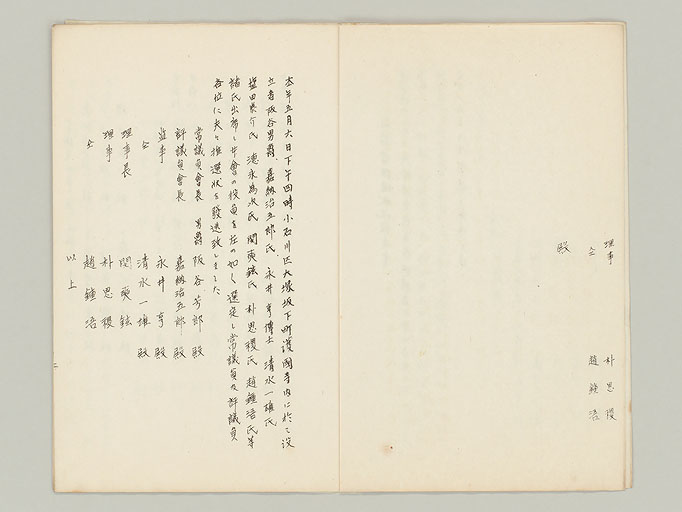 理事 朴思稷
仝 趙鍾浯
殿
本年五月六日下午四時小石川区大塚坂下町護國寺内に於て設
立者阪谷男爵 嘉納治五郎氏 永井亨博士 清水一雄氏
塩田泰介氏 徳永為次氏 閔奭鉉氏 朴思稷氏 趙鍾浯氏等
諸氏出席し 本會の役員を左の如く選定し常議員及評議員
各位に夫々推選状を發送致しました
常議員會長 男爵 阪谷芳郎殿
評議員會長 嘉納治五郎殿
監事 永井亨殿
仝 清水一雄殿
理事長 閔奭鉉
理事 朴思稷
仝 趙鍾浯
以上